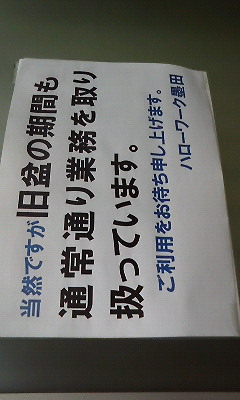 当然ですが旧盆の期間も
通常通り業務を取り
扱っています。
ご利用をお待ち申し上げます。
ハローワーク墨田